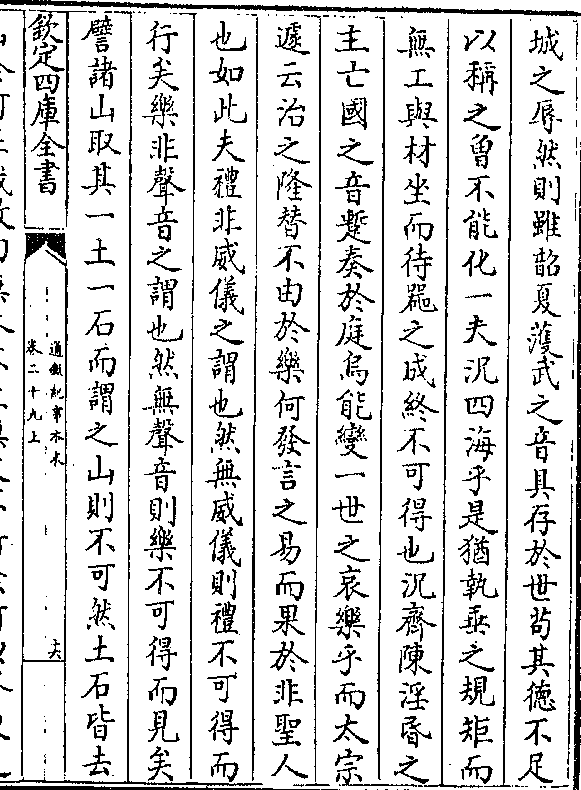 城之辱然則雖韶夏濩武之音具存於世茍其德不足
以稱之曽不能化一夫況四海乎是猶執垂之規矩而
無工與材坐而待器之成終不可得也況齊陳淫昏之
主亡國之音蹔奏於庭烏能變一世之哀樂乎而太宗
遽云治之隆替不由於樂何發言之易而果於非聖人
也如此夫禮非威儀之謂也然無威儀則禮不可得而
行矣樂非聲音之謂也然無聲音則樂不可得而見矣
譬諸山取其一土一石而謂之山則不可然土石皆去
欽定四庫全書
通鑑紀事本末
卷二十九上
六